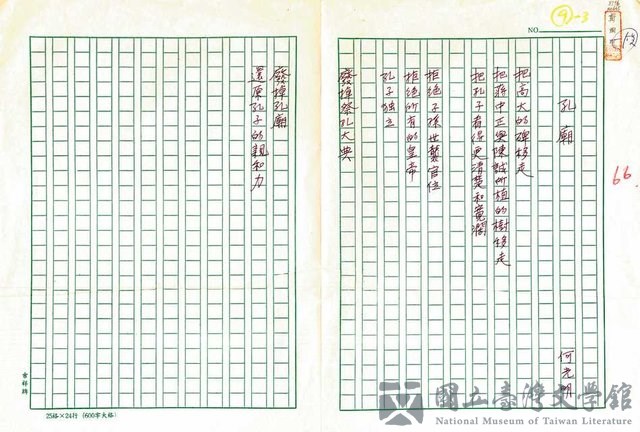 NO.
⑨-3
66.
孔廟
何光明
把高大的碑移走
把蔣中正與陳誠所植的樹移走
把孔子看得更清楚和寬闊
拒絕子孫世襲官位
拒絕所有的皇帝
孔子獨立
廢掉祭孔大典
廢掉孔廟
還原孔子的親和力
25格×24行 (600字大格)
國立臺灣文学館
National Museum of Taiwan Literature